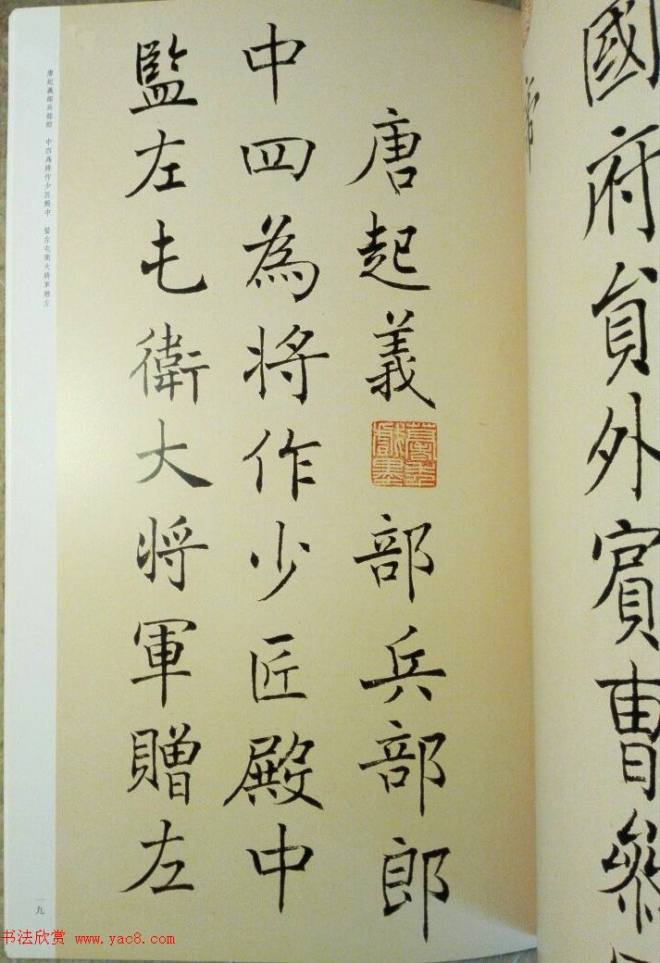 國府員外賓曹參
唐起義部兵部郎
中四為将作少匠殿中
監左屯衛大将軍贈左
唐起義部兵部郎 中四爲將作少匠殿中 監左屯衛大將軍贈左
一九
书法欣赏 www.yac8.com